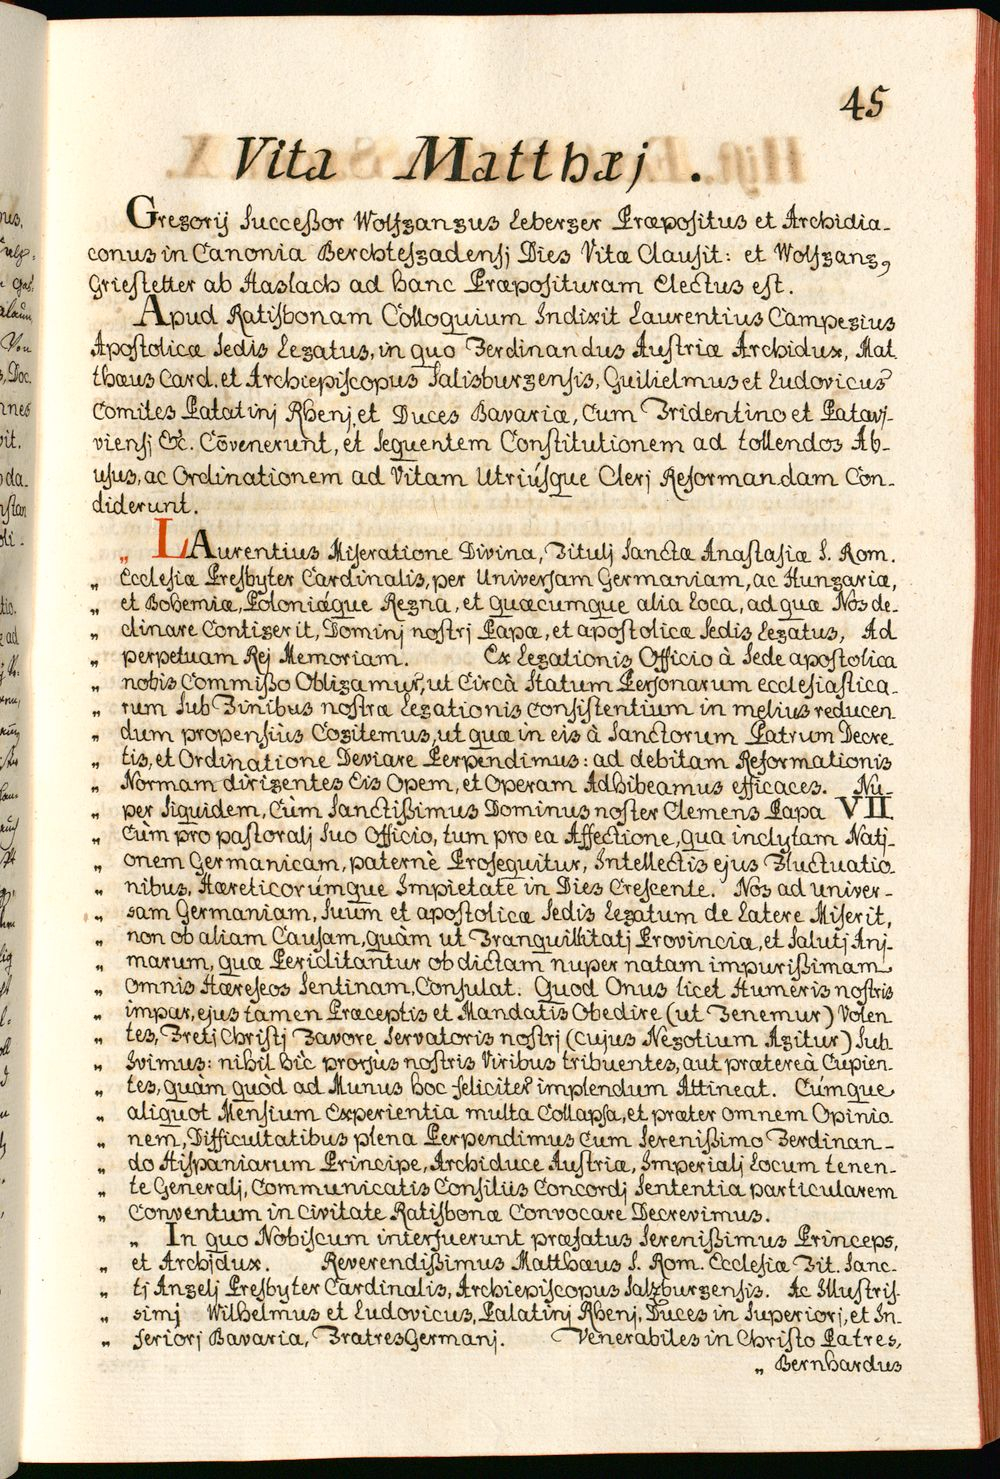 45
Vita Matthæj .
Gregorij Successor Wolfgangus Leberger Præpositus et Archidia-
conus in Canonia Berchtesgadensj Dies Vitæ Clausit: et Wolfgang,
Griestetter ab Haslach ad hanc Præposituram Electus est.
Apud Ratisbonam Colloquium Indixit Laurentius Campegius
Apostolicæ Sedis Legatus, in quo Ferdinandus Austriæ Archidux, Mat
thæus Card. et Archiepiscopus Salisburgensis, Guilielmus et Ludovicus
Comites Palatinj Rhenj, et Duces Bavariæ, Cum Tridentino et Patavi-
viensj &c. Cõvenerunt, et Sequentem Constitutionem ad tollendos Ab-
usus, ac Ordinationem ad Vitam Utriúsque Clerj Reformandam Con-
diderunt.
„ LAurentius Miseratione Divina, Titulj Sanctæ Anastasiæ S. Rom.
„ Ecclesiæ Presbyter Cardinalis, per Universam Germaniam, ac Hungariæ,
„ et Bohemiæ, Poloniǽque Regna, et quæcumque alia Loca, ad quæ Nos de-
„ clinare Contigerit, Dominj nostrj Papæ, et apostolicæ Sedis Legatus, Ad
„ perpetuam Rej Memoriam. Ex Legationis Officio à Sede apostolica
„ nobis Commisso Obligamur, ut Circà Statum Personarum ecclesiastica-
„ rum Sub Finibus nostræ Legationis consistentium in melius reducen
„ dum propensiùs Cogitemus, ut quæ in eis à Sanctorum Patrum Decre-
„ tis, et Ordinatione Deviare Perpendimus: ad debitam Reformationis
„ Normam dirigentes Eis Opem, et Operam Adhibeamus efficaces. Nu-
„ per Siquidem, Cùm Sanctissimus Dominus noster Clemens Papa VII.
„ Cùm pro pastoralj Suo Officio, tum pro ea Affectione, qua inclytam Nati-
„ onem Germanicam, paternè Prosequitur, Intellectis ejus Fluctuatio
„ nibus, Hæreticorúmque Impietate in Dies Crescente. Nos ad univer-
„ sam Germaniam, Suum et apostolicæ Sedis Legatum de Latere Miserit,
„ non ob aliam Causam, quàm ut Tranquillitatj Provinciæ, et Salutj Anj-
„ marum, quæ Periclitantur ob dictam nuper natam impurissimam
„ omnis Hæreseos Sentinam, Consulat. Quod Onus licet Humeris nostris
„ impar, ejus tamen Præceptis et Mandatis Obedire (ut Tenemur) Volen
„ tes, Fretj Christj Favore Servatoris nostrj (cujus Negotium Agitur) Sub
„ Ivimus: nihil hìc prorsus nostris Viribus tribuentes, aut prætereà Cupien-
„ tes, quàm quòd ad Munus hoc feliciter implendum Attineat. Cúmque
„ aliquot Mensium Experientia multa Collapsa, et præter omnem Opinio
„ nem, Difficultatibus plena Perpendimus Cum Serenissimo Ferdinan-
„ do Hispaniarum Principe, Archiduce Austriæ, Imperialj Locum tenen-
„ te Generalj, Communicatis Consiliis Concordj Sententia particularem
„ Conventum in Civitate Ratisbonæ Convocare Decrevimus.
„ In quo Nobiscum interfuerunt præfatus Serenissimus Princeps,
„ et Archidux. Reverendissimus Matthæus S. Rom. Ecclesiæ Tit. Sanc-
„ tj Angelj Presbyter Cardinalis, Archiepiscopus Salzburgensis. Ac Illustris-
„ simj Wilhelmus et Ludovicus, Palatinj Rhenj, Duces in Superiorj, et In-
„ feriorj Bavaria, Fratres Germanj. Venerabiles in Christo Patres,
„ Bernhardus